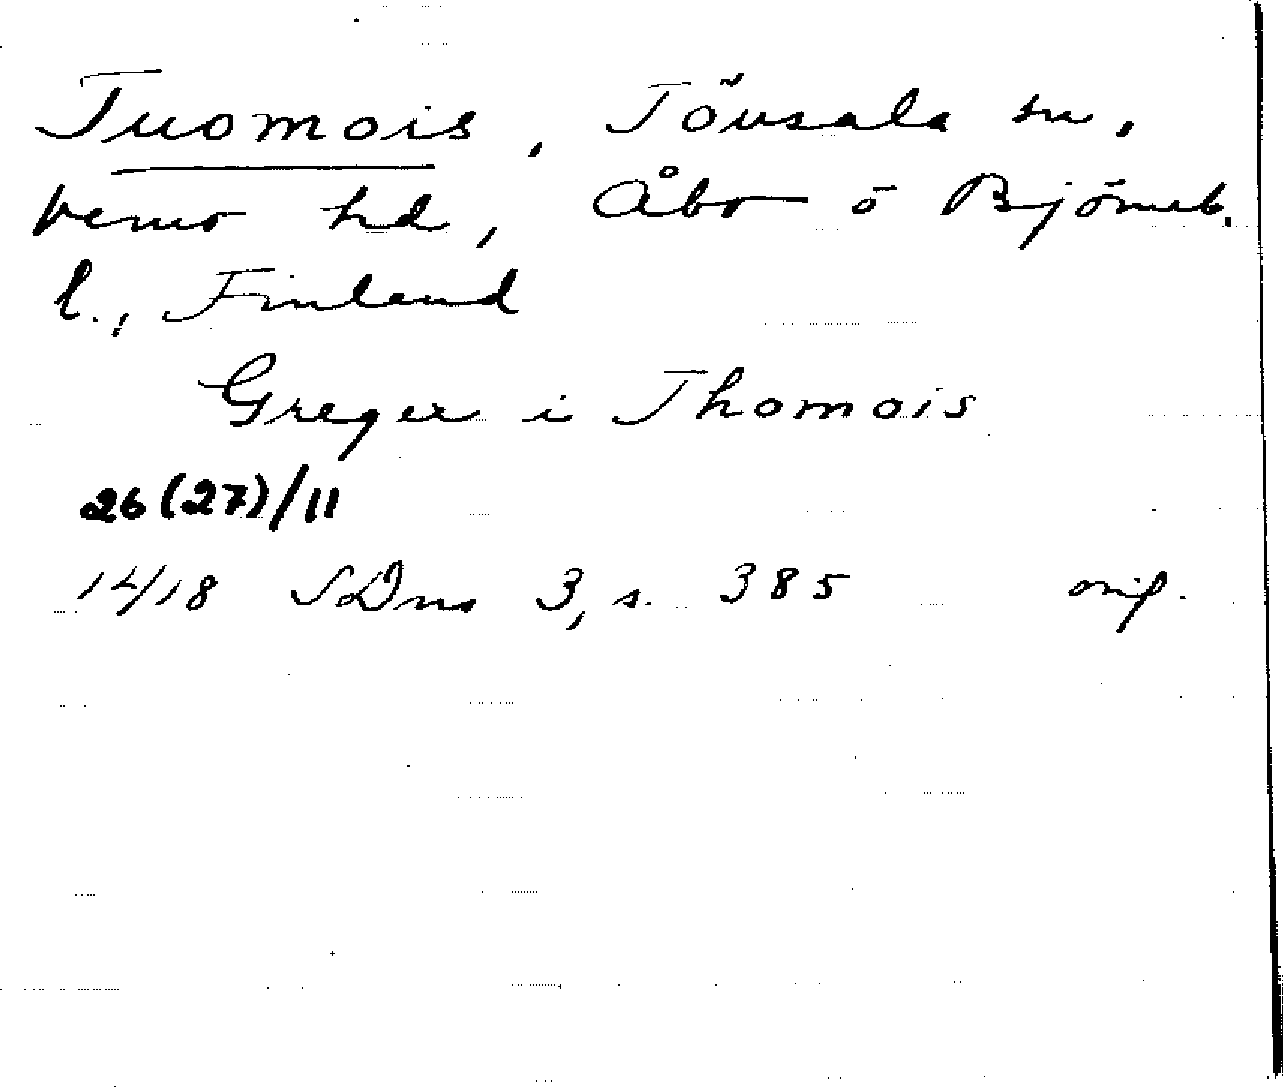 Tuomois, Tövsala sn,
Vemo hd, Åbo o Björneb.
l., Finland
Greger i Thomois
26(27)/11
14/18 SDns 3, s. 385 orig.